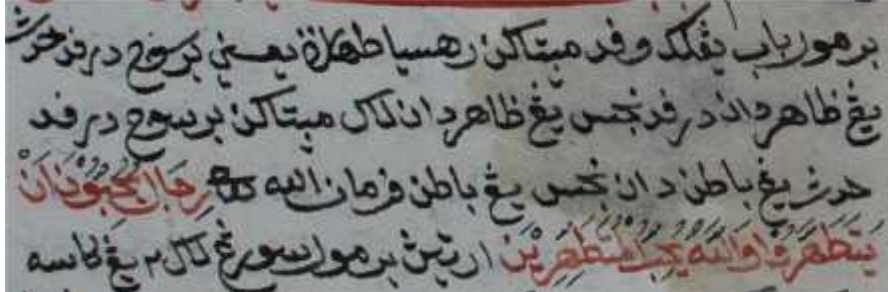 برمور باب يڠكد وفد مپتاكن رهسيا طهارة يعني برسوچ درفد حدث
يڠ ظاهر دان درفد نجس يڠ ظاهر دان لاك مپتاكن برسوچ درفد
حدث يڠ باطن دان نجس يڠ باطن فرمان الله رِجَالٌ يُحِبُّوْنَ اَنْ
يَتَطَهَّرُوْا وَاللّٰهُ يُحِبُّ الْمُطَّهِّرِيْنَ ارتيڽ برمول سورڠ لاك٢ يڠ كاسه